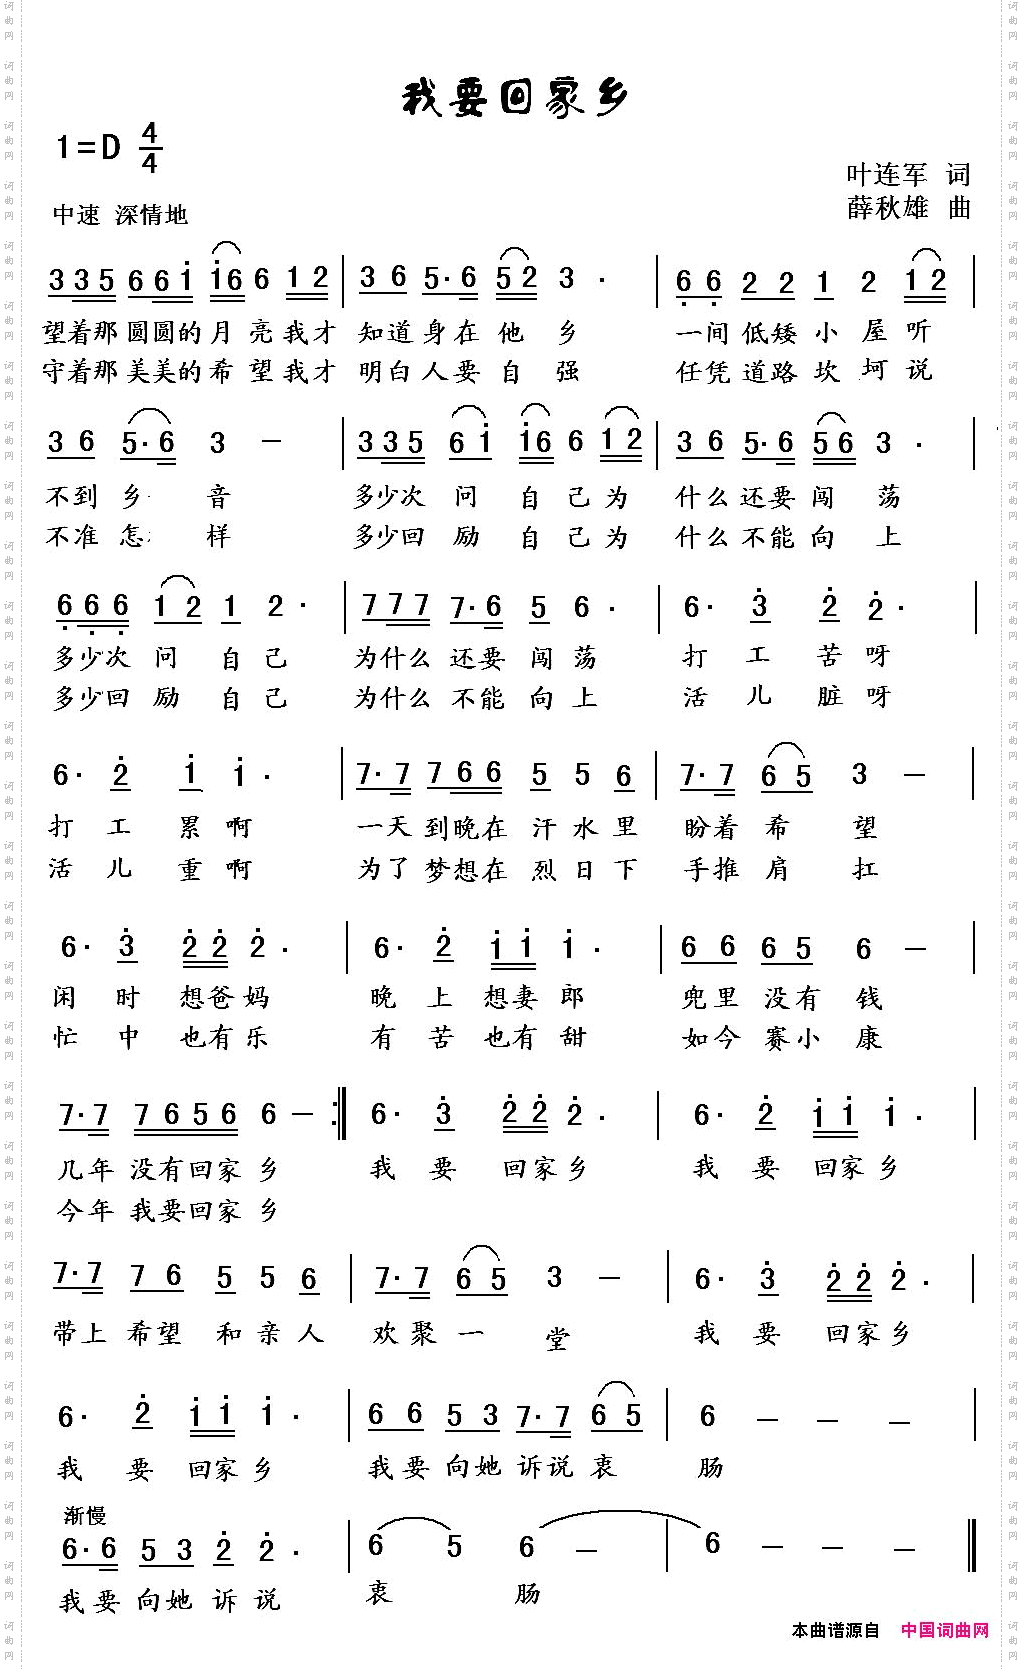 我要回家乡
1=D 4/4
叶连军 词
中速 深情地
薛秋雄 曲
3 3 5 6 6 i i 6 6 1 2 | 3 6 5· 6 5 2 3 · | 6 6 2 2 1 2 1 2 |
望着那圆圆的月亮我才 知道身在他乡 一间低矮小屋听
守着那美美的希望我才 明白人要自强 任凭道路坎坷说
3 6 5· 6 3 — | 3 3 5 6 i i 6 6 1 2 | 3 6 5· 6 5 6 3 · |
不到乡音 多少次问自己为 什么还要闯荡
不准怎样 多少回励自己为 什么不能向上
6 6 6 1 2 1 2 · | 7 7 7 7· 6 5 6 · | 6· 3 2 2 · |
多少次问自己 为什么还要闯荡 打工苦呀
多少回励自己 为什么不能向上 活儿脏呀
6· 2 i i · | 7· 7 7 6 6 5 5 6 | 7· 7 6 5 3 — |
打工累啊 一天到晚在汗水里 盼着希望
活儿重啊 为了梦想在烈日下 手推肩扛
6· 3 2 2 2 · | 6· 2 i i i · | 6 6 6 5 6 — |
闲时想爸妈 晚上想妻郎 兜里没有钱
忙中也有乐 有苦也有甜 如今赛小康
7· 7 7 6 5 6 6 — :| 6· 3 2 2 2 · | 6· 2 i i i · |
几年没有回家乡 我要回家乡 我要回家乡
今年我要回家乡
7· 7 7 6 5 5 6 | 7· 7 6 5 3 — | 6· 3 2 2 2 · |
带上希望和亲人 欢聚一堂 我要回家乡
6· 2 i i i · | 6 6 5 3 7· 7 6 5 | 6 — — — |
我要回家乡 我要向她诉说衷 肠
渐慢
6· 6 5 3 2 2 · | 6 5 6 — | 6 — — — ‖
我要向她诉说 衷肠
本曲谱源自 中国词曲网